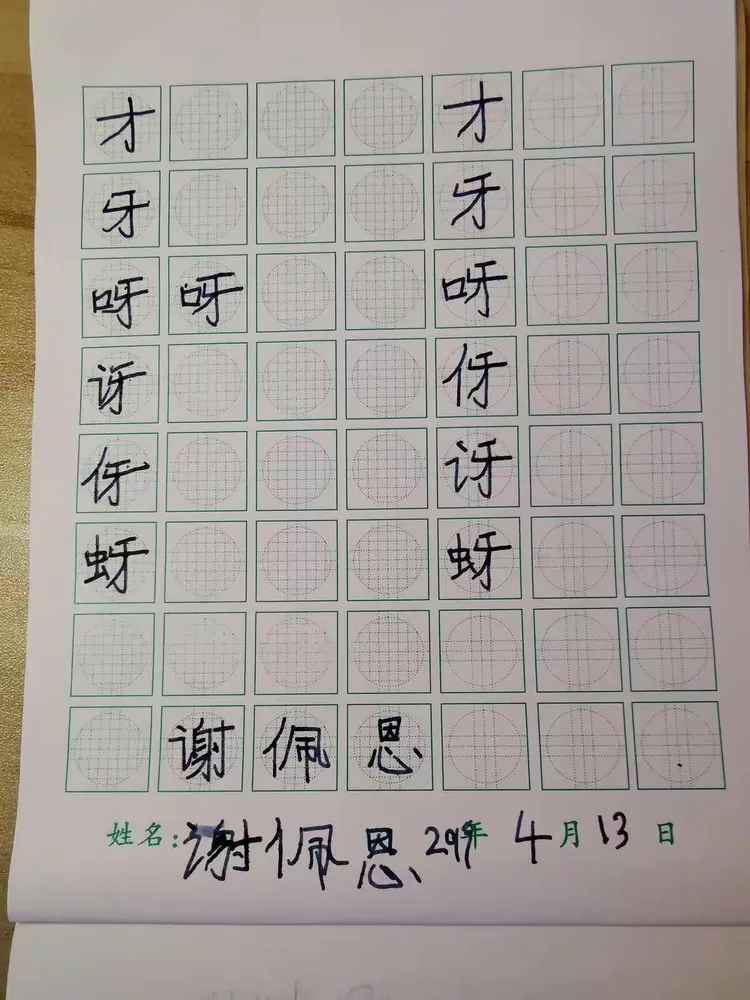 才 才
牙 牙
呀 呀 呀
讶 伢
伢 讶
蚜 蚜
谢 佩 恩
姓名:谢佩恩 年 4月13日